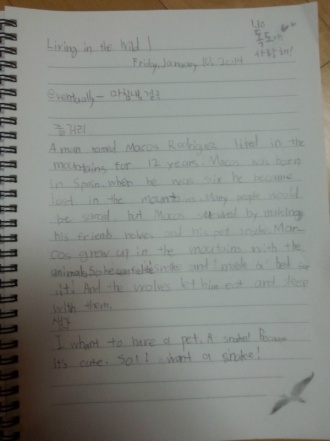 Living in the Wild 1
Friday, January 10, 2014
Eventually - 마침내, 결국
줄거리
A man named Macos Rodriguez lived in the
mountains for 12 years. Macos was born
in Spain. when he was six he became
lost in the mountains. Many people would
be scared, but Macos by making
his friends wolves and his pet snake. Mar-
cos grew up in the mountains with the
animals. So he can talk snake and had
it! And the wolves let him eat and sleep
with them.
I whant to have a pet. A snake! Because
It's cute. So I want a snake!